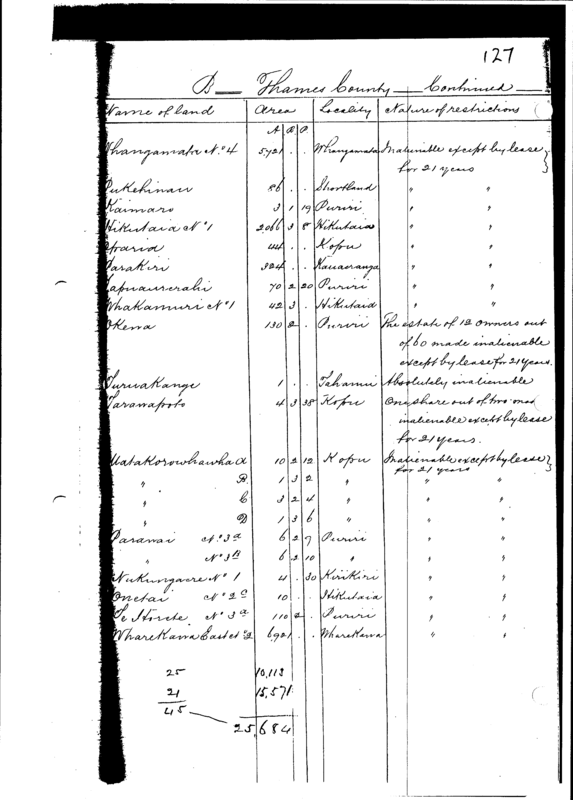 127
D — Thames County — Continued —
Name of land Area Locality Nature of restrictions
A R P
Whangamata No. 4 5721 . . Whangamata Inalienable except by lease
for 21 years
Pukehinau 86 . . Shortland " "
Kaimaro 3 1 19 Puriri " "
Hikutaia No 1 2,066 3 8 Hikutaia " "
44 . . Kopu " "
Parakiri 324 . . Kauaeranga " "
70 2 20 Puriri " "
Whakamuri No 1 42 3 . Hikutaia " "
Okewa 130 2 . Puriri The estate of 12 owners out
of 60 made inalienable
except by lease for 21 years.
Turuakange 1 . . Absolutely inalienable
Tarawapoto 4 3 38 Kopu One share out of two made
inalienable except by lease
for 21 years.
Matakorowhawha A 10 2 12 Kopu Inalienable except by lease
for 21 years
" B 1 3 2 " " "
" C 3 2 4 " " "
" D 1 3 6 " " "
Parawai No. 3a 6 2 7 Puriri " "
" No 3B 6 2 10 " " "
Nukungaere No 1 4 . 30 Kirikiri " "
Onetai No 2c 10 . . Hikutaia " "
No 3a 110 2 . Puriri " "
Wharekawa East No 2 6,921 . . Wharekawa " "
25 10,113
21 15,571
45
25,684